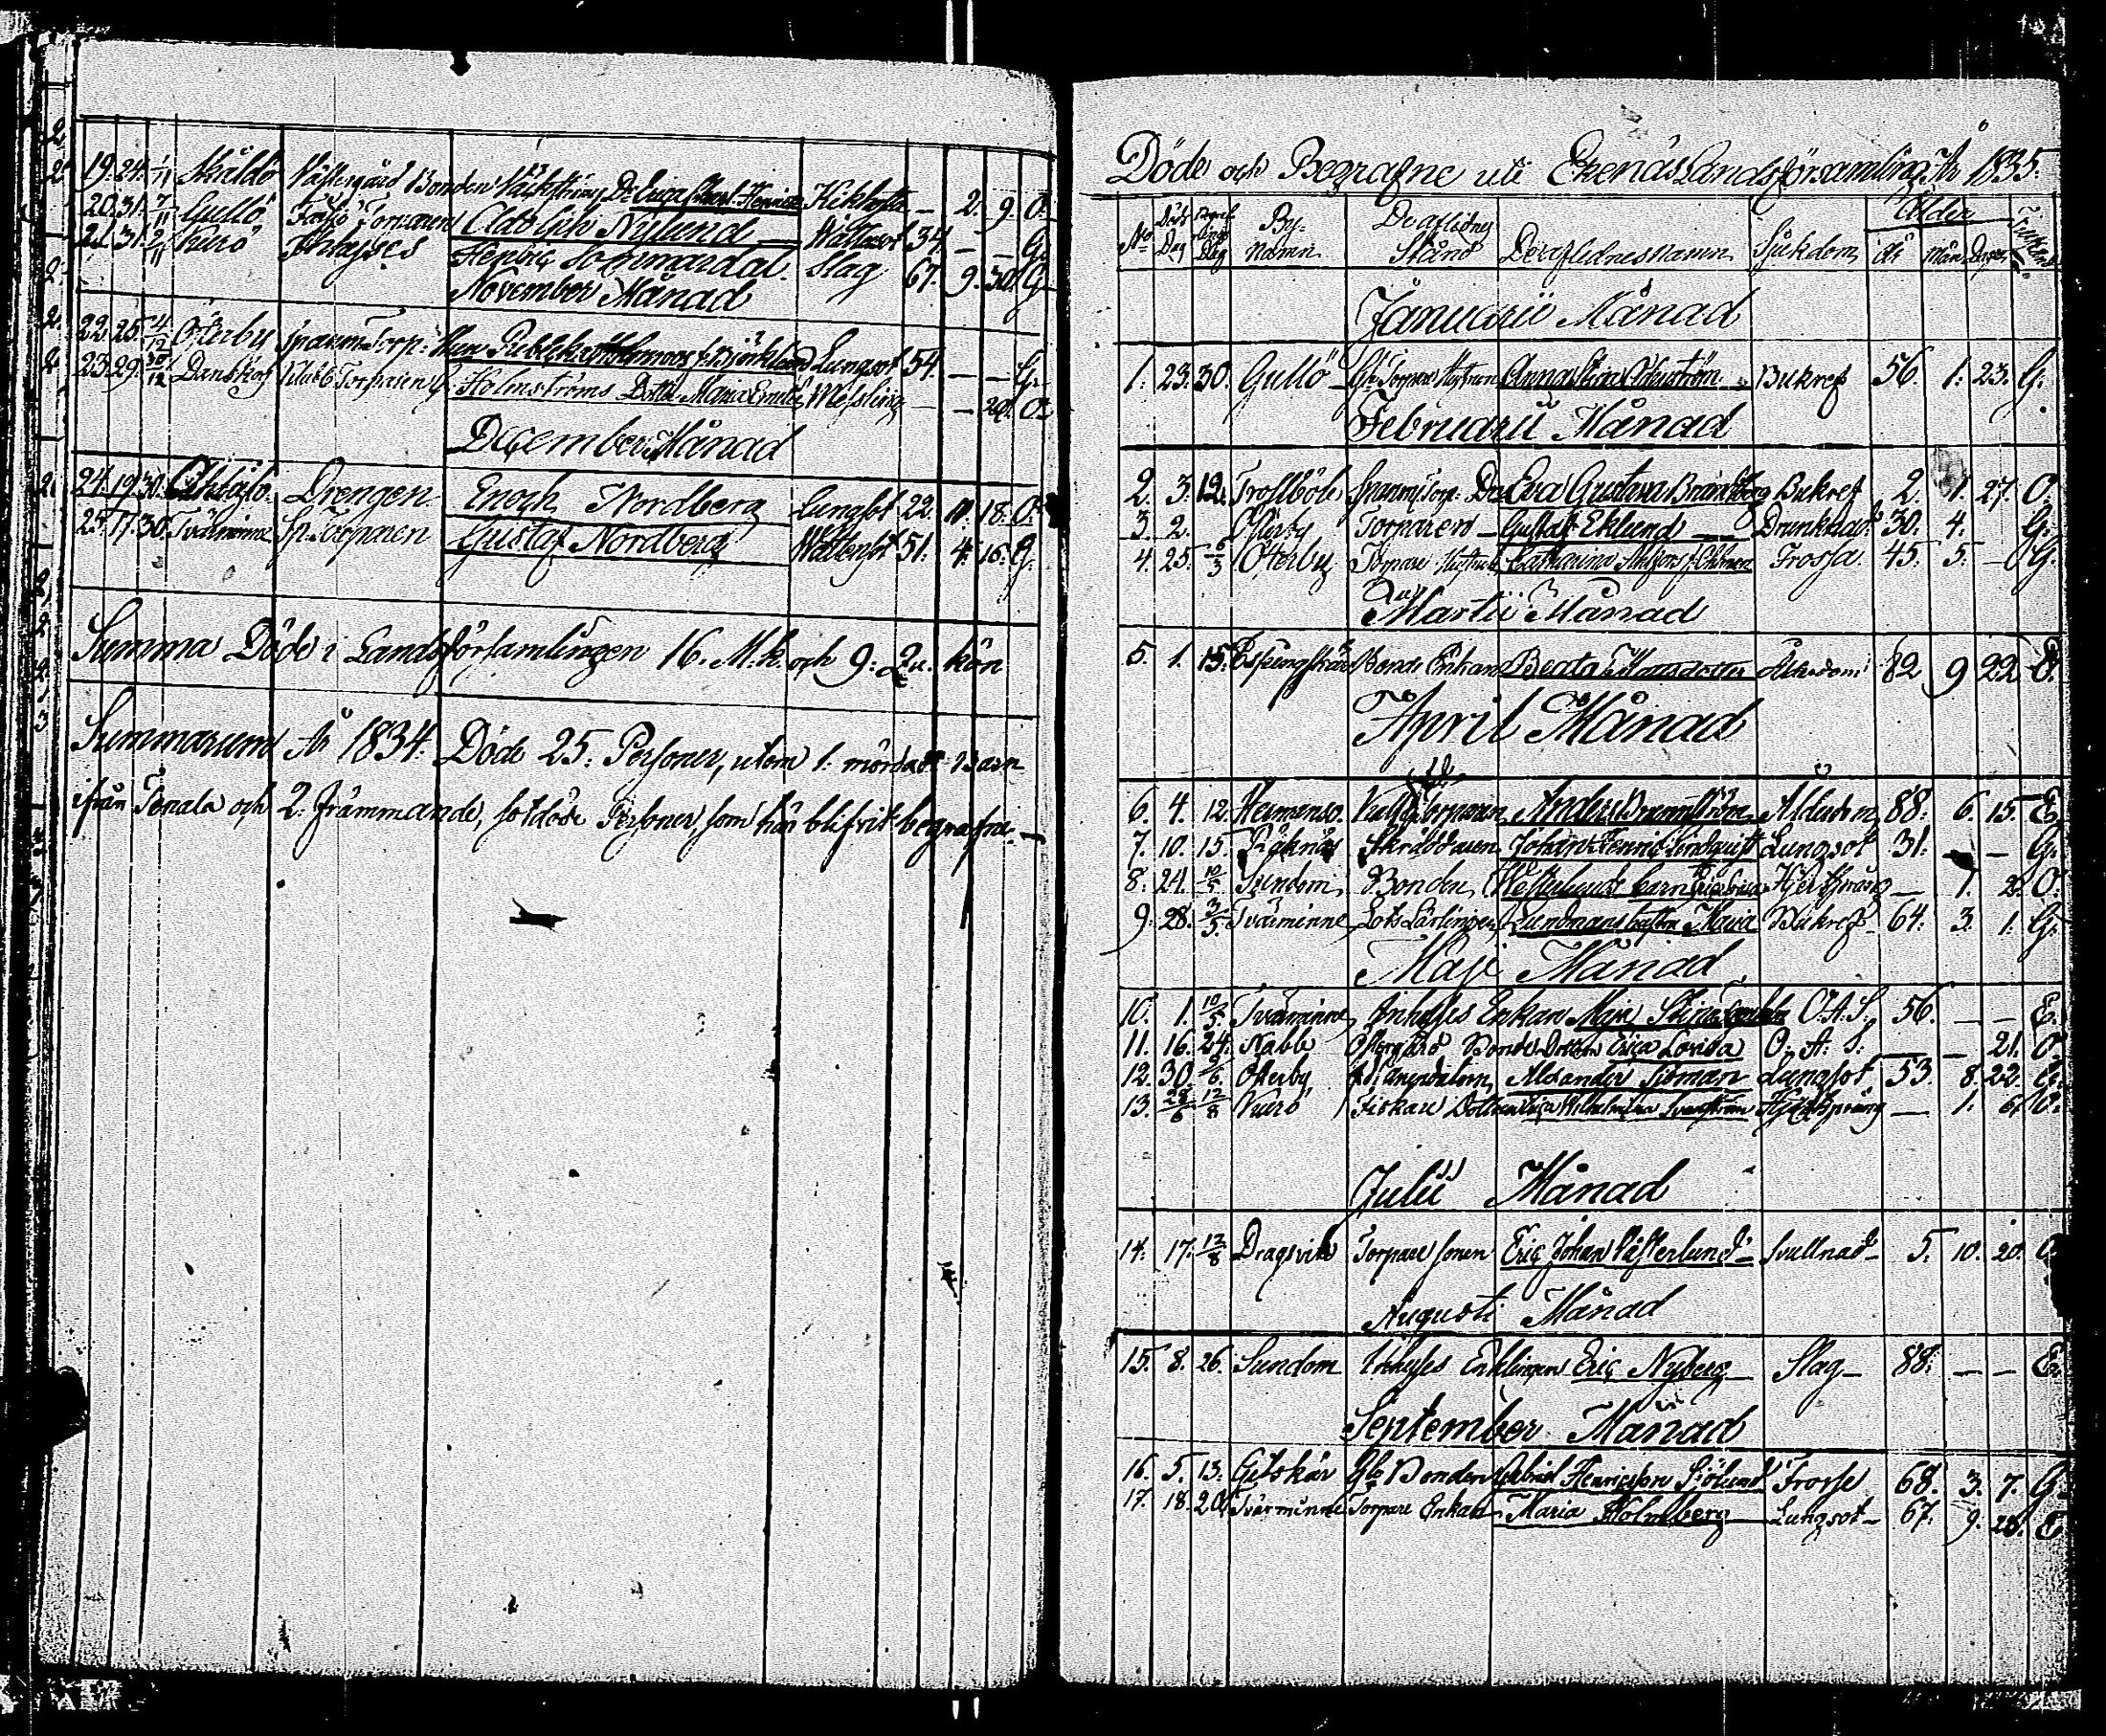 19. 24. 1/11 Skåldö Västergård Bonden Dr Hikhosta — 2. 9. O.
20. 31. 7/11 Gullö Torparen Adolph Nylund — Wattusot 34 — — G.
21. 31. 2/11 Kurö Inhyses Henric Sommardal. Slag 67. 9. 30. G.
November Månad
22. 25. 4/12 Österby Torp. Lungsot 54. — — G.
23. 29. 30/12 Danskog Klubb Torparen G. Holmströms Dotter Maria Messling — — 24. O.
December Månad
24. 19. 30. Drengen Enoch Nordberg Lungsot 22. 11. 18. O.
25. 17. 30. Tvärminne Sp. Torparen Gustaf Nordberg Wattusot 51. 4. 16. G.
Summa Döde i Landsförsamlingen 16. M. k. och 9. Qu. kön
Summarum År 1834. Döde 25. Personer, utom 1. mördadt Barn
ifrån Tenala och 2. främmande, sotdöde Personer, som här blifvit begrafne. —
Döde och Begrafne uti Ekenäs Landsförsamling År 1835.
No Döds Dag Begrafnings Dag By-Namn De aflidnes Stånd De aflednes namn Sjukdom Ålder År Mån. Dagar
Januarii Månad
1. 23. 30. Gullö Torpare Hustrun Anna Stina Bukref 56. 1. 23. G.
Februarii Månad
2. 3. 12. Trollböle Torp. Dr Eva Gustava Bukref 2. 1. 27. O.
3. 2. Österby Torparen — Gustaf Eklund — Drunknad 30. 4. G.
4. 25. 6/3 Österby Torpare Hustrun Catharina Frossa. 45. 5. — G.
Martii Månad
5. 1. 15. Espingskär Bonde Enkan Beata Mattsdotter Ålderdom 82 9 22 E.
April Månad
6. 4. 12. Hermansö Torparen Anders Brunström Ålderdom 88. 6. 15. E.
7. 10. 15. Råknäs Skräddaren Johan Henric Lindqvist Lungsot 31. — — G.
8. 24. 10/5 Sundom Bonden Westerlunds barn Hjertsprång — 1. 2. O.
9. 28. 3/5 Tvärminne Lots Lärlingen Lundmans hustru Maria Bukref 64. 3. 1. G.
Maji Månad
10. 1. 10/5 Tvärminne Inhyses Enkan Maja Stina O. A. S. 56. — — E.
11. 16. 24. Nabbe Östergård Bonde Dottern Erica Lovisa O. A. S. — — 21. O.
12. 30. 9/6 Österby Alexander Sidman Lungsot 53. 8. 22. G.
13. 28/6 12/8 Kurö Fiskare Dottern Wilhelmina Hjertsprång — 1. 6. O.
Julii Månad
14. 17. 12/8 Dragsvik Torpare sonen Eric Johan Västerlund — Svullnad — 5. 10. 20. O.
Augusti Månad
15. 8. 26. Sundom Inhyses Enklingen Eric Nyberg Slag — 88. — — E.
September Månad
16. 5. 13. Getskär Gle Bonden Gabriel Henricsson Sjölund Frossa 68. 3. 7. G.
17. 18. 20. Tvärminne Torpare Enkan Maria Holmberg Lungsot — 67. 9. 28. E.